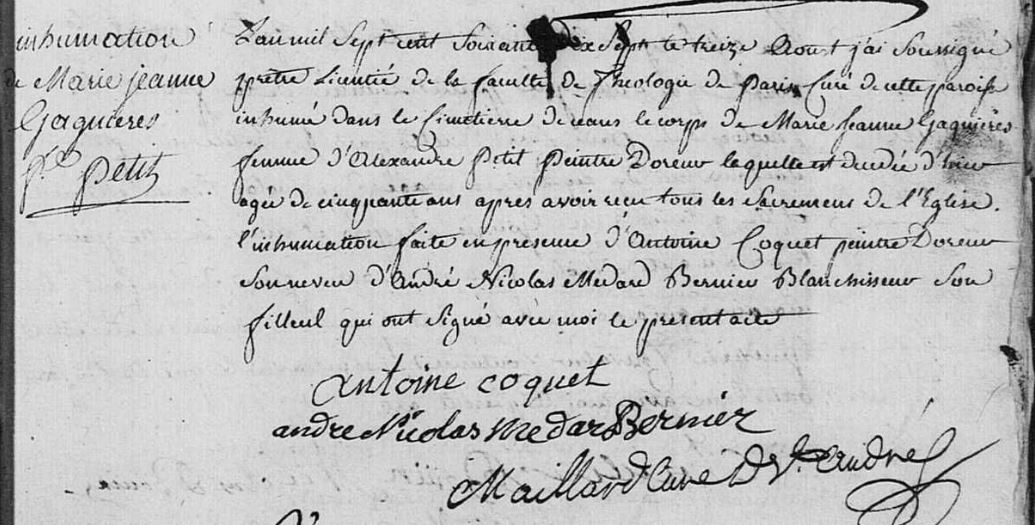 inhumation
de Marie jeanne
Gagnieres
fe petit
Lan mil Sept cent Soixante dix Sept le treize Aoust j'ai Soussigné
prêtre Licentié de la faculté de Theologie de Paris Curé de cette paroisse
inhumé dans le Cimetiere de ceans le corps de Marie Jeanne Gagnières
femme d'Alexandre Petit peintre Doreur laquelle est decedée d'hier
agée de cinquante ans apres avoir reçu tous les Sacremens de l'Eglise.
l'inhumation faite en presence d'Antoine Coquet peintre Doreur
Son neveu d'André Nicolas Medard Bernier Blanchisseur Son
filleul qui ont Signé avec moi le present acte
antoine coquet
andre Nicolas medard Bernier
Maillard Curé D St. André